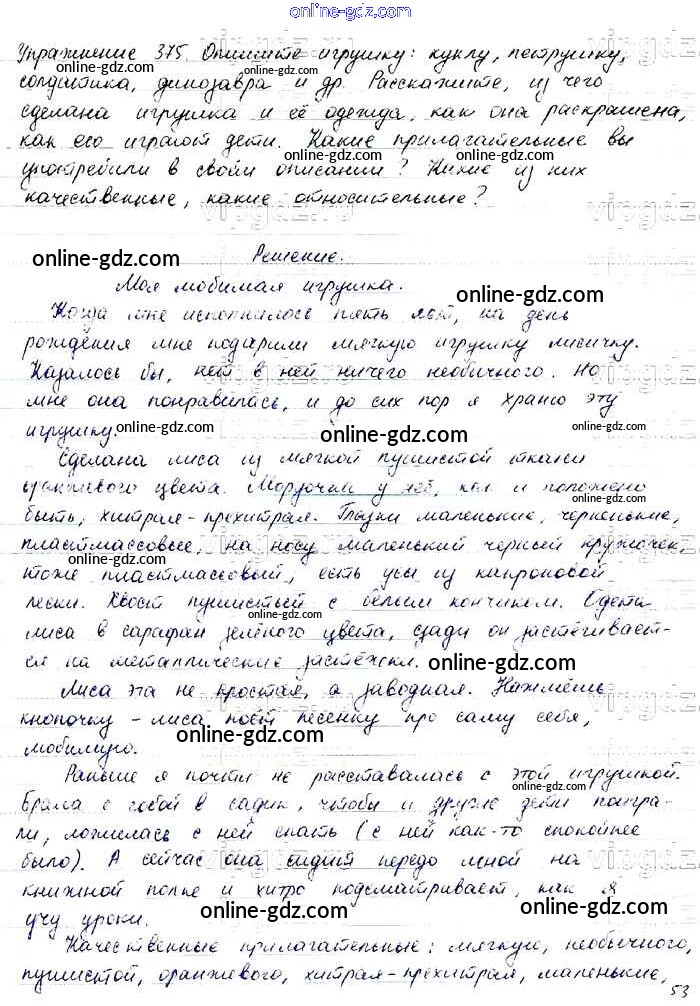 online-gdz.com
Упражнение 375. Опишите игрушку: куклу, петрушку,
солдатика, динозавра и др. Расскажите, из чего
сделана игрушка и её одежда, как она раскрашена,
как ею играют дети. Какие прилагательные вы
употребили в своём описании? Какие из них
качественные, какие относительные?
Решение.
Моя любимая игрушка.
Когда мне исполнилось пять лет, на день
рождения мне подарили мягкую игрушку лисичку.
Казалось бы, нет в ней ничего необычного. Но
мне она понравилась, и до сих пор я храню эту
игрушку.
Сделана лиса из мягкой пушистой ткани
оранжевого цвета. Мордочка у неё, как и положено
быть, хитрая-прехитрая. Глазки маленькие, черненькие,
пластмассовые, на носу маленький черный кружочек,
тоже пластмассовый, есть усы из капроновой
лески. Хвост пушистый с белым кончиком. Одета
лиса в сарафан зелёного цвета, сзади он застёгивает-
ся на металлические застёжки.
Лиса эта не простая, а заводная. Нажмёшь
кнопочку - лиса поёт песенку про саму себя,
любимую.
Раньше я почти не расставалась с этой игрушкой.
Брала с собой в садик, чтобы и другие дети поигра-
ли, ложилась с ней спать (с ней как-то спокойнее
было). А сейчас она сидит передо мной на
книжной полке и хитро подсматривает, как я
учу уроки.
Качественные прилагательные: мягкую, необычного,
пушистой, оранжевого, хитрая-прехитрая, маленькие,
53